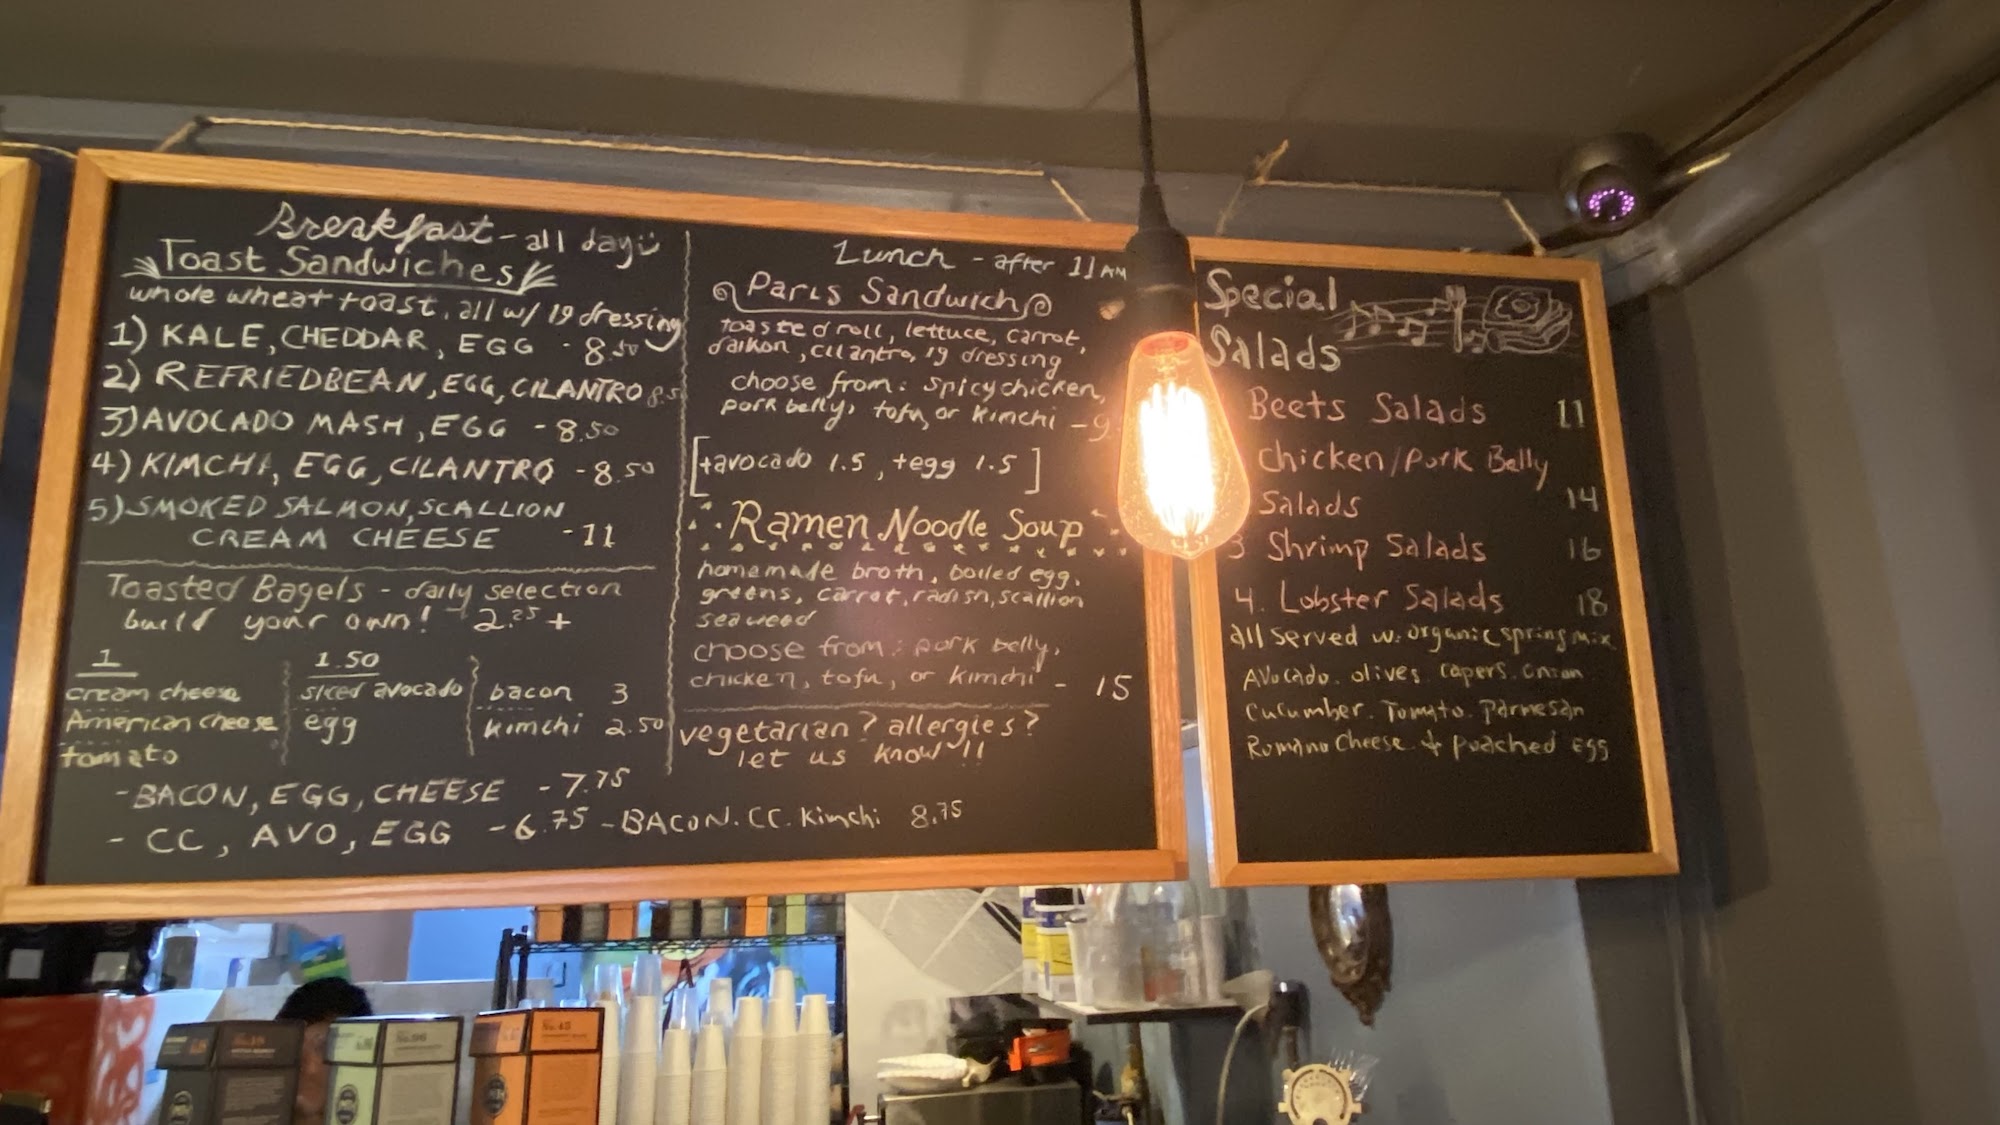 Breakfast - all day
Toast Sandwiches
whole wheat toast, all w/ 19 dressing
1) KALE, CHEDDAR, EGG - 8.50
2) REFRIEDBEAN, EGG, CILANTRO 8.5
3) AVOCADO MASH, EGG - 8.50
4) KIMCHI, EGG, CILANTRO - 8.50
5) SMOKED SALMON, SCALLION
CREAM CHEESE - 11
Toasted Bagels - daily selection
build your own! - 2.25 +
1
cream cheese
American cheese
tomato
1.50
sliced avocado
egg
bacon 3
kimchi 2.50
- BACON, EGG, CHEESE - 7.75
- CC, AVO, EGG - 6.75 - BACON. CC. Kimchi 8.75
Lunch - after 11 AM
Paris Sandwich
toasted roll, lettuce, carrot,
daikon, cilantro, 19 dressing
choose from: spicy chicken,
pork belly, tofu, or kimchi - 9
[+avocado 1.5, +egg 1.5]
Ramen Noodle Soup
homemade broth, boiled egg,
greens, carrot, radish, scallion
seaweed
choose from: pork belly,
chicken, tofu, or kimchi - 15
vegetarian? allergies?
let us know!!
Special
Salads
Beets Salads 11
Chicken/Pork Belly
Salads 14
3 Shrimp Salads 16
4. Lobster Salads 18
all served w. organic spring mix
Avocado. olives. capers. onion
Cucumber. Tomato. Parmesan
Romano Cheese & poached egg